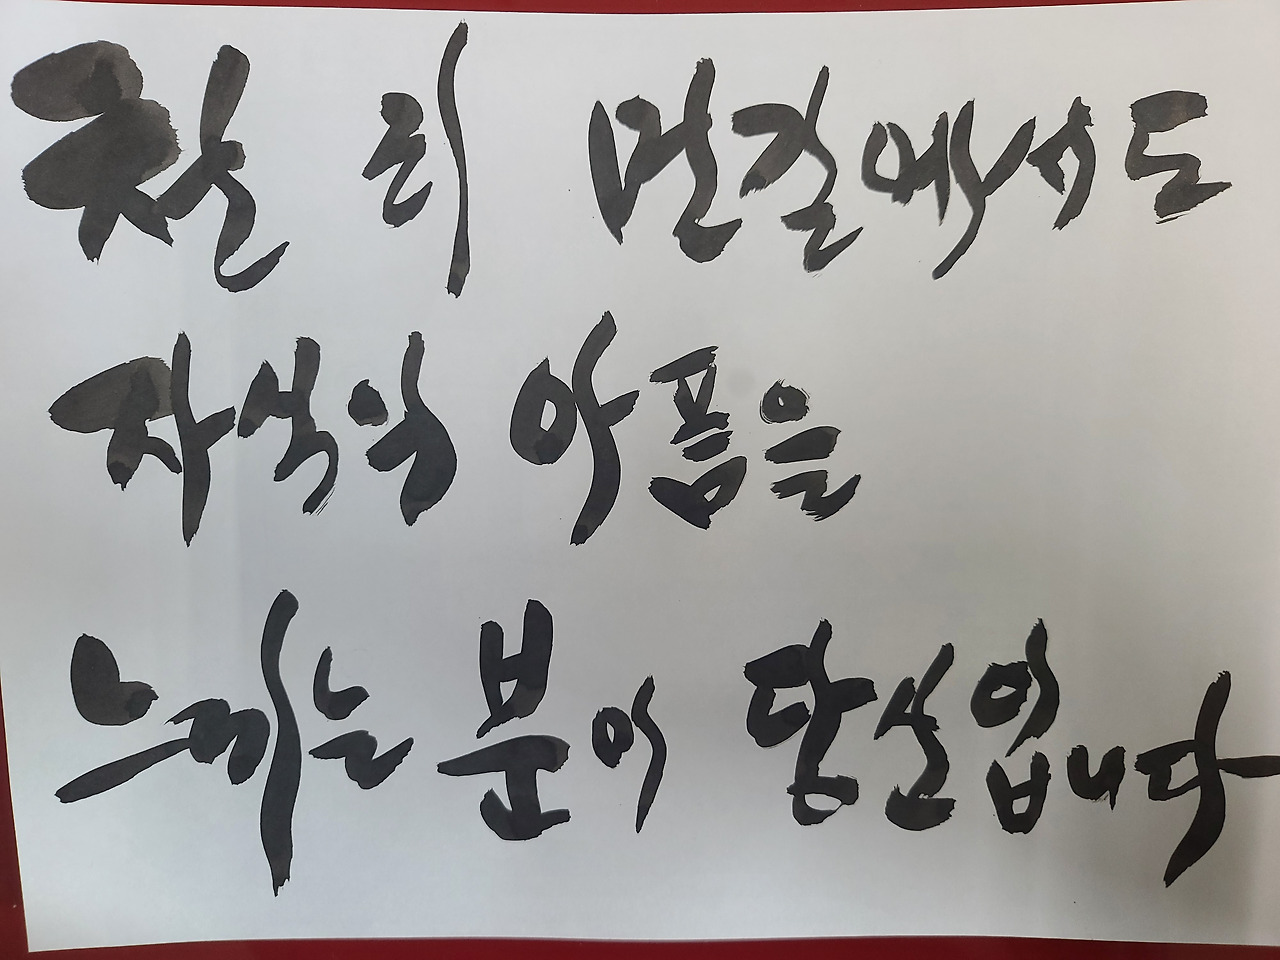 천 리 먼길에서도
자식의 아픔을
느끼는 분이 당신입니다